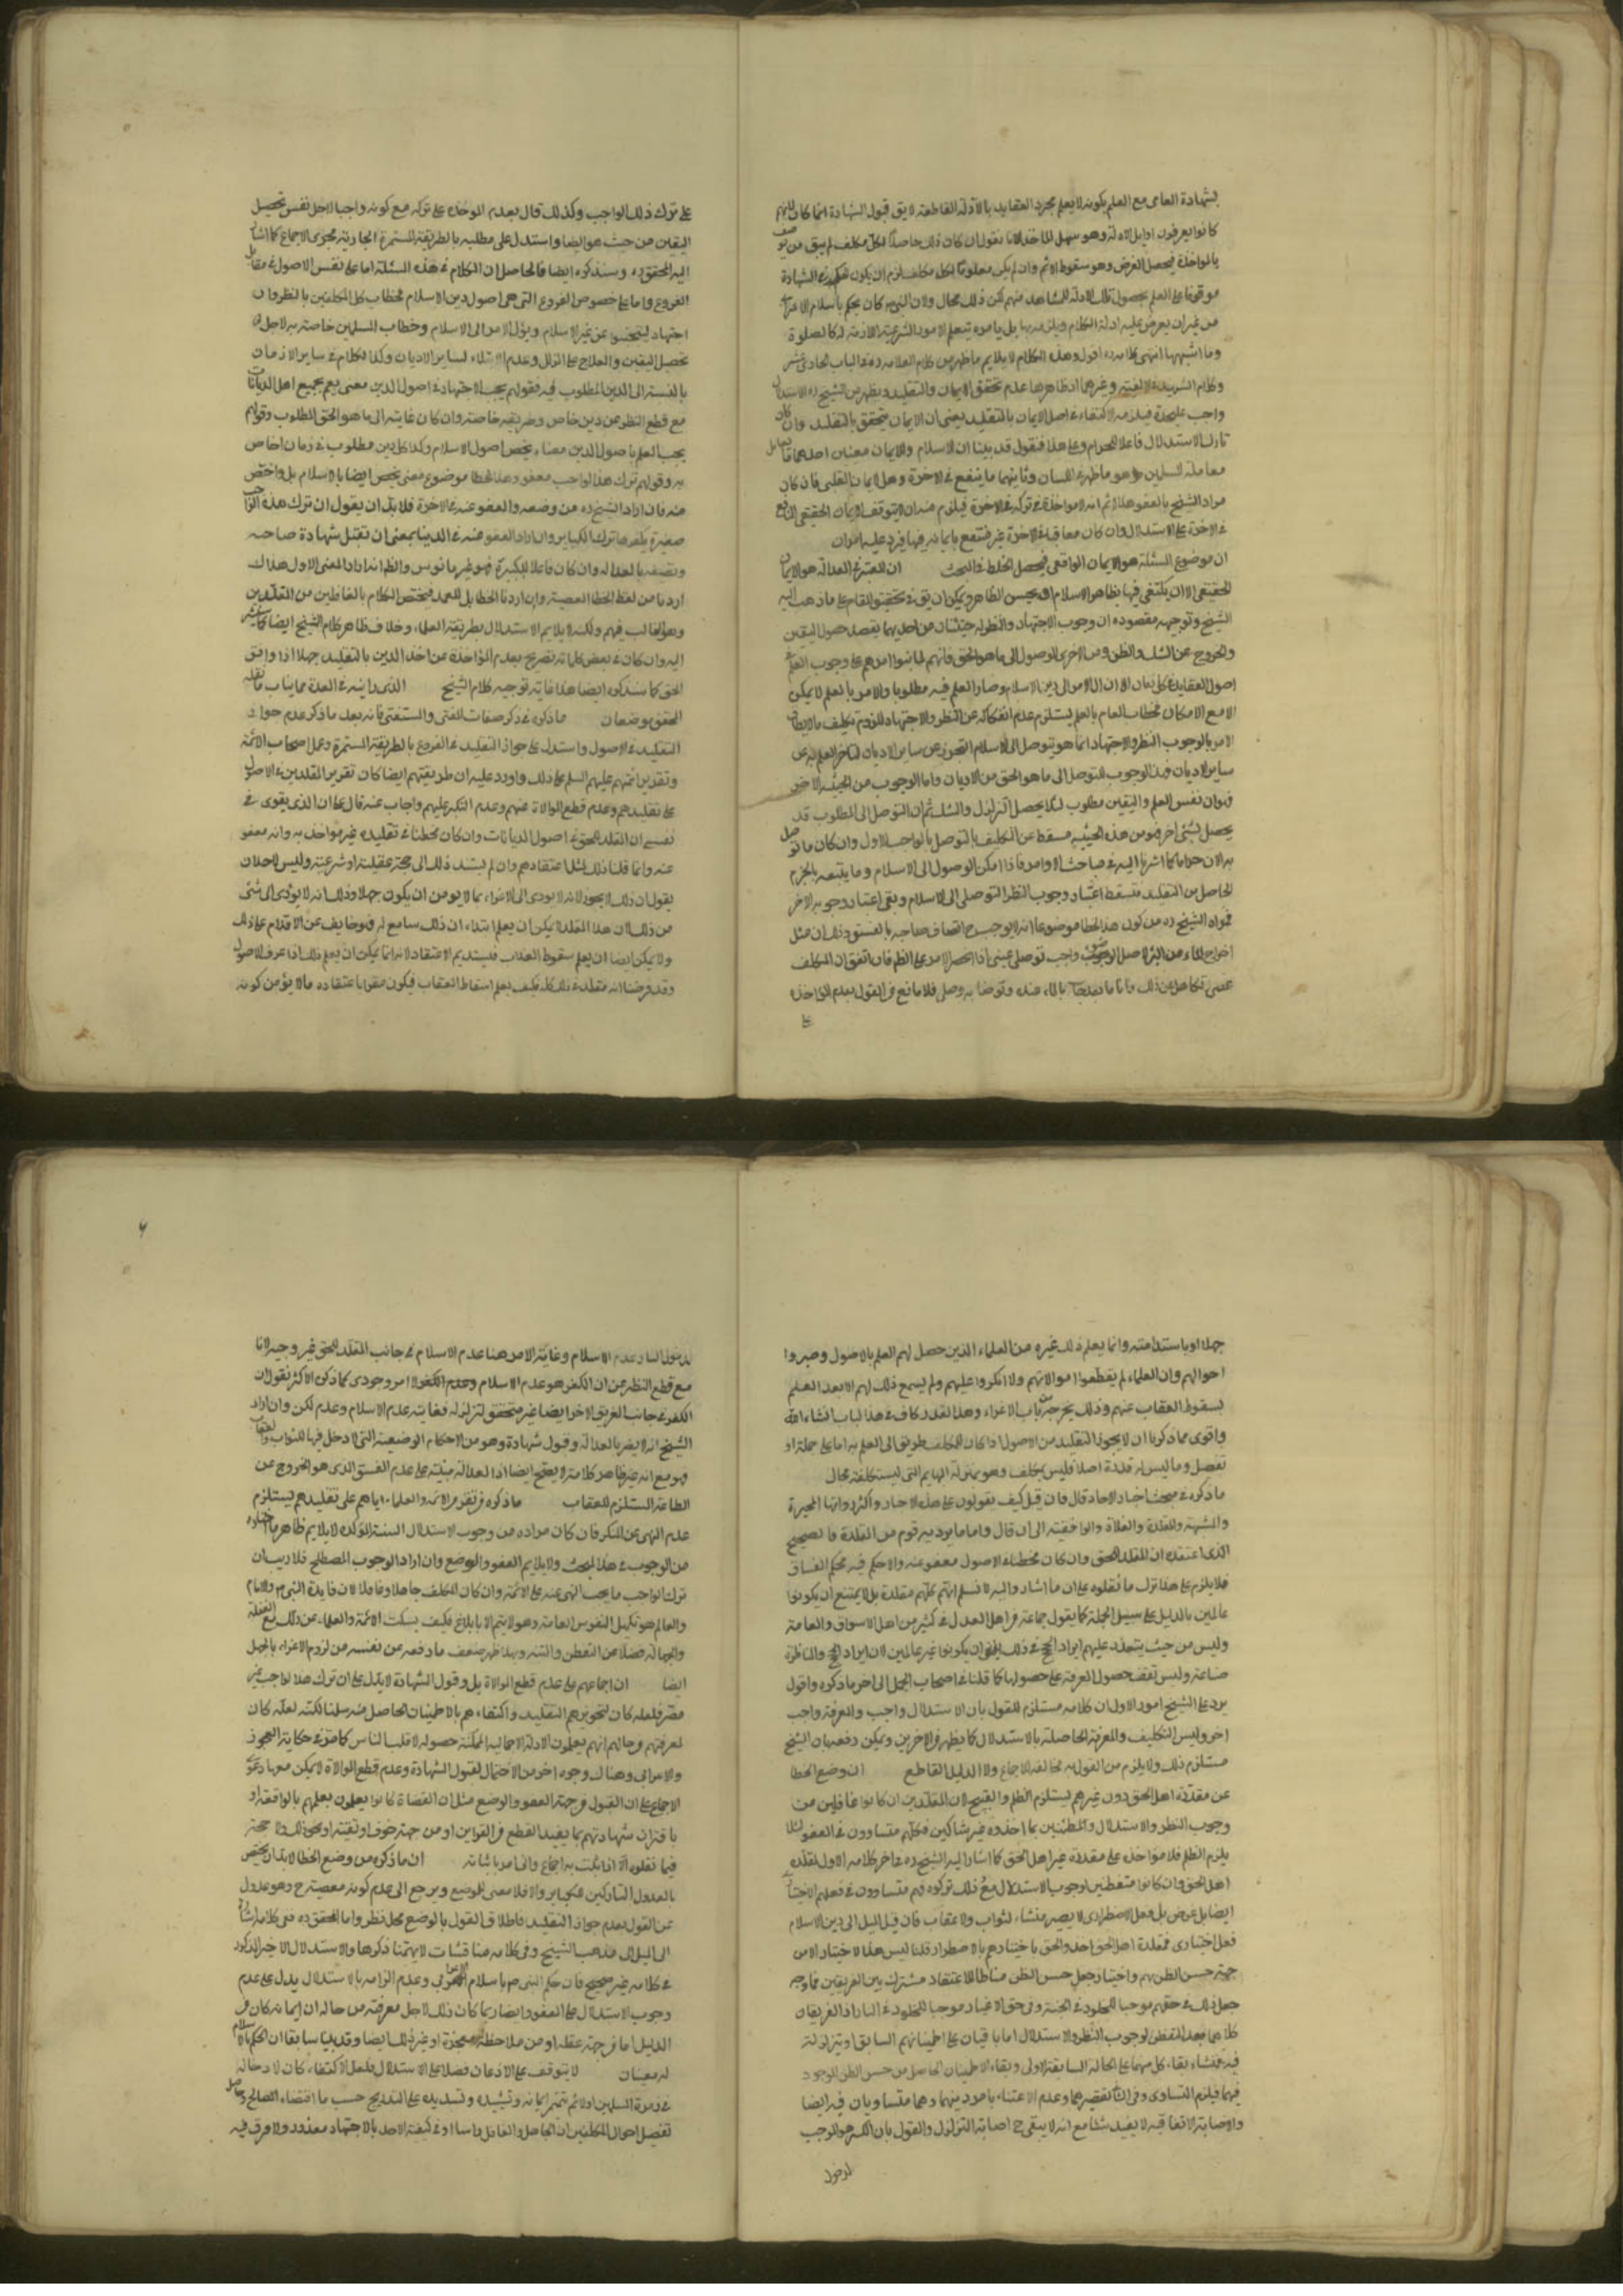 بشهادة العامى مع العلم بكونه لا يعلم مجرد العقايد بالادلة القاطعة لا يق قبول الشهادة انما كان لانهم
كانوا يعرفون اوايل الادلة وهو سهل الماخذ لانا نقول ان كان ذلك حاصلا لكل مكلف لم يبق من يوصف
بالمؤاخذة فيحصل الغرض وهو سقوط الاثم وان لم يكن معلوما لكل مكلف لزم ان يكون الحكم بالشهادة
موقوفا على العلم بحصول تلك الادلة للشاهد منهم لكن ذلك محال ولان النبى ص كان يحكم باسلام الاعرابى
من غير ان يعرض عليه ادلة الكلام ولا يلزمه بها بل يامره بتعلم الامور الشرعية اللازمة له كالصلوة
وما اشبهها انتهى كلامه ره اقول وهذا الكلام لا يلايم ما ظهر من كلام العلامة ره فى الباب الحادى عشر
وكلام الشهيد فى الالفية وغيرهما اذ ظاهرها عدم تحقق الايمان والتقليد ويظهر من الشيخ ره ان الاستدلال
واجب عليحدة فيلزمه الاكتفاء فى اصل الايمان بالتقليد يعنى ان الايمان يتحقق بالتقليد وان كان
تارك الاستدلال فاعلا للحرام وعلى هذا فنقول قد بينا ان الاسلام والايمان معنيان احدهما ما يعامل
معاملة المسلمين وهو ما ظهر فى اللسان وثانيهما ما ينفع فى الاخرة وهى الايمان القلبى فان كان
مراد الشيخ بالعفو هذا الاثم انه لا مؤاخذة فى تركه فى الاخرة فيلزم منه ان لا يتوقف الايمان الحقيقى النافع
فى الاخرة على الاستدلال وان كان معاقبا فى الاخرة غير منتفع بايمانه فيها فيرد عليه امران
ان موضوع المسئلة هو الايمان الواقعى فيحصل الخلط فى البحث ان المعتبر فى العدالة هو الايمان
الحقيقى الا ان يكتفى فيها بظاهر الاسلام او بحسن الظاهر ويمكن ان يق فى تحقيق المقام على ما ذهب اليه
الشيخ وتوجيه مقصوده ان وجوب الاجتهاد والنظر له حيثيتان من احديهما يقصد حصول اليقين
والخروج عن الشك والظن ومن الاخرى الوصول الى ما هو الحق فانهم لما بنوا امرهم على وجوب العلم فى
اصول العقايد فى كل زمان الى ان ال الامر الى دين الاسلام وصار العلم فيه مطلوبا والامر بالعلم لا يمكن
الا مع الامكان فخطاب العام بالعلم يستلزم عدم انفكاكه عن النظر والاجتهاد للزوم تكليف ما لا يطاق
الامر بالوجوب النظر والاجتهاد انما هو يتوصل الى الاسلام التحرز عن ساير الاديان
ساير الاديان فهذا الوجوب للتوصل الى ما هو الحق من الاديان واما الوجوب من الحيثية الاخرى
فهو ان نفس العلم واليقين مطلوب لئلا يحصل التزلزل والشك ثم ان التوصل الى المطلوب قد
يحصل بشئ اخر فهو من هذه الحيثية مسقط عن التكليف بالتوصل بالواجب الاول وان كان ما توصل
به الان حراما كما اشرنا اليه فى مباحث الاوامر فاذا امكن الوصول الى الاسلام وما يتبعه بالجزم
الحاصل من التقليد فسقط اعتبار وجوب النظر التوصلى الى الاسلام وبقى اعتبار وجوبه الاخر
فمراد الشيخ ره من كون هذا الخطا موضوعا انه لا يوجب ح اتصاف صاحبه بالفسق وذلك ان مثل
اخراج الماء من البئر لاصل الوضوء واجب توصلى عينى اذا انحصر الامر على الظم فان اتفق ان المكلف
عصى تكاهل عن ذلك فاتاه ما يعد بالماء عنده وتوضا به وصلى فلا مانع فى القول بعدم المؤاخذة
على
على ترك ذلك الواجب وكذلك قال بعدم المؤاخذة على تركه مع كونه واجبا لاجل نفس تحصيل
اليقين من حيث هو ايضا واستدل على مطلبه بالطريقة المستمرة الجارية مجرى الاجماع كما اشار
اليه المحقق ره وسنذكره ايضا فالحاصل ان الكلام فى هذه المسئلة اما على نفس الاصول فى مقابل
الفروع واما على خصوص الفروع التى هى اصول دين الاسلام فخطاب كل المكلفين بالنظر وان
اجتهاد ليفحصوا عن غير الاسلام ويؤل الامر الى الاسلام وخطاب المسلمين خاصة به لاجل ان
تحصل اليقين والعلاج على الزلل وعدم الابتلاء لساير الاديان وكذا الكلام فى ساير الازمان
بالنسبة الى الدين المطلوب فيه فقولهم يجب الاجتهاد فى اصول الدين معنى يعم جميع اهل الديانات
مع قطع النظر عن دين خاص وطريقة خاصة وان كان غايته الى ما هو الحق المطلوب وقولهم
يجب العلم باصول الدين معناه يخص اصول الاسلام وكذا كل دين مطلوب فى زمان اخاص
به وقولهم ترك هذا الواجب معفو وهذا الخطا موضوع معنى يخص ايضا بالاسلام بل واخص
منه فان اراد الشيخ ره من وضعه والعفو عنه فى الاخرة فلا بد ان يقول ان ترك هذه الواجب
صغيرة يكفرها ترك الكباير وان اراد العفو عنه فى الدنيا بمعنى ان تقبل شهادة صاحبه
ونصفه بالعدالة وان كان فاعلا للكبيرة فهو غير مانوس والظم انه اراد المعنى الاول هذا ان
اردنا من لفظ الخطا المعصية وان اردنا الخطا بل العمد فيختص الكلام بالغافلين من المقلدين
وهو الغالب فيهم ولكنه لا يلايم الاستدلال بطريقة العلماء وخلاف ظاهر كلام الشيخ ايضا كما سنشير
اليه وان كان فى بعض كلماته تصريح بعدم المؤاخذة عن اخذ الدين بالتقليد جهلا اذا وافق
الحق كما سنذكره ايضا هذا غاية توجيه كلام الشيخ الذى رايته فى العدة مما يناسب ما نقله
المحقق موضعان ما ذكره فى ذكر صفات المفتى والمستفتى فانه بعد ما ذكر عدم جواز
التقليد فى الاصول واستدل على جواز التقليد فى الفروع بالطريقة المستمرة وعمل اصحاب الائمة
وتقرير ائمتهم عليهم السلم على ذلك واورد عليه ان طريقتهم ايضا كان تقرير المقلدين فى الاصول
على تقليدهم وعدم قطع الموالاة عنهم وعدم النكير عليهم واجاب عنه قال على ان الذى يقوى فى
نفسى ان المقلد للحق فى اصول الديانات وان كان مخطئا فى تقليده غير مؤاخذ به وانه معفو
عنه وانما قلنا ذلك لمثل اعتقادهم وان لم يستند ذلك الى حجة عقلية او شرعية وليس لاحد ان
يقول ان ذلك لا يجوز لانه لا يودى الى الاغراء بما لا يؤمن ان يكون جهلا وذلك انه لا يؤدى الى شئ
من ذلك لان هذا المقلد لا يمكن ان يعلم ابتداء ان ذلك سايغ له فهو خايف من الاقدام على ذلك
ولا يمكن ايضا ان يعلم سقوط العقاب فيستديم الاعتقاد لانه انما يمكن ان يعلم ذلك اذا عرف الاصول
وقد فرضنا انه مقلد فى ذلك كله فكيف يعلم اسقاط العقاب فيكون مغرا باعتقاده ما لا يؤمن كونه
جهلا او باستدامته وانما يعلم ذلك غيره من العلماء الذين حصل لهم العلم بالاصول وصبروا
احوالهم وان العلماء لم يقطعوا موالاتهم ولا انكروا عليهم ولم يسع ذلك لهم الا بعد العلم
بسقوط العقاب عنهم وذلك يخرجه من باب الاغراء وهذا القدر كاف فى هذا الباب انشاء الله
واقوى مما ذكرنا ان لا يجوز التقليد من الاصول اذا كان للمكلف طريق الى العلم به اما على جملة او
تفصيل وما ليس له قدرة اصلا فليس بمكلف وهو بمنزلة البهايم التى ليست مكلفة بحال
ما ذكره فى مبحث اخبار الاحاد قال فان قيل كيف تقولون على هذه الاخبار واكثر رواتها المجبرة
والمشبهة والمقلدة والغلاة والواقفية الى ان قال واما ما يرويه قوم من المقلدة فالصحيح
الذى اعتقده ان المقلد للحق وان كان مخطئا فى الاصول معفو عنه ولا احكم فيه بحكم الفساق
فلا يلزم على هذا ترك ما نقلوه على ان ما اشاروا اليه لا نسلم انهم كلهم مقلدة بل لا يمتنع ان يكونوا
عالمين بالدليل على سبيل الجملة كما يقول جماعة من اهل العدل فى كثير من اهل الاسواق والعامة
وليس من حيث يتعذر عليهم ايراد الحجج فى ذلك ينبغى ان يكونوا غير عالمين لان ايراد الحجج والمناظرة
صناعة وليس تقف حصول المعرفة على حصولها كما قلنا فى اصحاب الجمل الى اخر ما ذكره واقول
يرد على الشيخ امور الاول ان كلامه مستلزم للقول بان الاستدلال واجب والمعرفة واجب
اخر وليس التكليف والمعرفة الحاصلة بالاستدلال كما يظهر فى الاخرين ويمكن دفعه بان الشيخ
مستلزم ذلك ولا يلزم من القول به مخالفة الاجماع ولا الدليل القاطع ان وضع الخطا
عن مقلدة اهل الحق دون غيرهم يستلزم الظلم والقبيح لان المقلدين ان كانوا غافلين من
وجوب النظر والاستدلال والمطمئنين بما اخذوه غير شاكين فكلهم متساوون فى العفو لئلا
يلزم الظلم فلا مؤاخذة على مقلدة غير اهل الحق كما اشار اليه الشيخ ره فى اخر كلامه الاول لمقلدة
اهل الحق وان كانوا متفطنين لوجوب الاستدلال مع ذلك تركوه فهم متساوون فى فعلهم الاختيارى
ايضا بل عرض بل فعل الاضطرارى لا يصير منشاء لثواب ولا عقاب فان قيل الميل الى دين الاسلام
فعل اختيارى فمقلدة اهل الحق اخذوا الحق باختيارهم بالاضطرار قلنا ليس هذا الاختيار الا من
جهة حسن الظن بهم واختيار وجعل حسن الظن مناطا للاعتقاد مشترك بين الفريقين فما وجه
جعل ذلك فى حقهم موجبا للخلود فى الجنة وفى حق الاغيار موجبا للخلود فى النار اذ الفريقان
كلاهما بعد التفطن لوجوب النظر والاستدلال اما باقيان على اطمينانهم السابق او يتزلزلة
فيه فمنشاء بقاء كل منهما على الحالة السابقة الاولى وبقاء الاطمينان الحاصل من حسن الظن الموجود
فيهما فيلزم التساوى وفى الثانى تقصيرهما وعدم الاعتناء بامر دينهما وهما متساويان فيه ايضا
والاصابة الاتفاقية لا يفيد شيئا مع انه لا يبقى ح اصابة التزلزل والقول بان الكفر هو الموجب
لدخول
٦
لدخول النار وعدم الاسلام وغاية الامر هنا عدم الاسلام فى جانب المقلد للحق غير وجيه لانا
مع قطع النظر عن ان الكفر هو عدم الاسلام وعدم الكفر لا امر وجودى كما ذكره الاكثر نقول ان
الكفر فى جانب الفريق الاخر ايضا غير متحقق لتزلزله فغايته عدم الاسلام وعدم لكن وان اراد
الشيخ انه لا يضر بالعدالة وقبول شهادة وهو من الاحكام الوضعية التى لا دخل فيها للثواب والعقاب
فهو مع انه غير ظاهر كلامه لا يصح ايضا اذ العدالة مبنية على عدم الفسق الذى هو الخروج عن
الطاعة المستلزم للعقاب ما ذكره من تقرير الائمة والعلماء اياهم على تقليدهم يستلزم
عدم النهى عن المنكر فان كان مراده من وجوب الاستدلال السنة المؤكدة لا يلايم ظاهر ما اختاره
من الوجوب فى هذا المبحث ولا يلايم العفو والوضع وان اراد الوجوب المصطلح فلا ريب ان
ترك الواجب ما يجب النهى عنه على الائمة وان كان المكلف جاهلا وغافلا لان فايدة النبى ص والامام
والعالم هو تكميل النفوس العامة وهو لا يتم الا بابلاغ فكيف يسكت الائمة والعلماء عن ذلك مع الغفلة
والجهالة فضلا عن التفطن والتنبه وبهذا ظهر ضعف ما دفعه عن نفسه من لزوم الاغراء بالجهل
ايضا ان اجماعهم على عدم قطع الموالاة بل وقبول الشهادة لا يدل على ان ترك هذا الواجب غير
مضر فلعله كان لتجويزهم التقليد واكتفاءهم بالاطمينان الحاصل منه سلمنا لكنه لعله كان
لمعرفتهم وحالهم انهم يعلمون الادلة الاجمالية الممكنة حصوله لاغلب الناس كما مر فى حكاية العجوز
والاعرابى وهناك وجوه اخر من الاحتمال لقبول الشهادة وعدم قطع الموالاة لا يمكن معها دعوى
الاجماع على ان القبول من جهة العفو والوضع مثل ان القضاة كانوا يعملون بعلمهم بالواقعة او
باقتران شهادتهم بما يفيد القطع من القراين او من جهة خوف او تقية او نحو ذلك ولا حجة
فيما نقلوه الا اذا ثبت به اجماع وانى له باثباته ان ما ذكره من وضع الخطا لا بد ان يختص
بالعدول التاركين للكباير والا فلا معنى للوضع ويرجع الى عدم كونه معصية ح وهو عدول
عن القول بعدم جواز التقليد فاطلاق القول بالوضع محل نظر واما المحقق ره ففى كلامه اشارة
الى الميل الى مذهب الشيخ وفى كلامه مناقشات لا يهمنا ذكرها والاستدلال الاخير المذكور
فى كلامه غير صحيح فان حكم النبى ص باسلام الاعرابى وعدم الزامه بالاستدلال يدل على عدم
وجوب الاستدلال على العفو وايضا ربما كان ذلك لاجل معرفته من حاله ان ايمانه كان من
الدليل اما من جهة عقله او من ملاحظة معجزة او غير ذلك ايضا وقد بينا سابقا ان الحكم بالاسلام
له معنيان لا يتوقف على الاذعان فضلا على الاستدلال فلعل الاكتفاء كان لادخاله
فى زمرة المسلمين اولا ثم تتميم ايمانه وتشييده وتسديده على التدريج حسب ما اقتضاه المصالح وحاصل
تفصيل احوال المكلفين ان الجاهل والغافل راسا او فى كيفية الامر بالاجتهاد معذور ولا فرق فيه